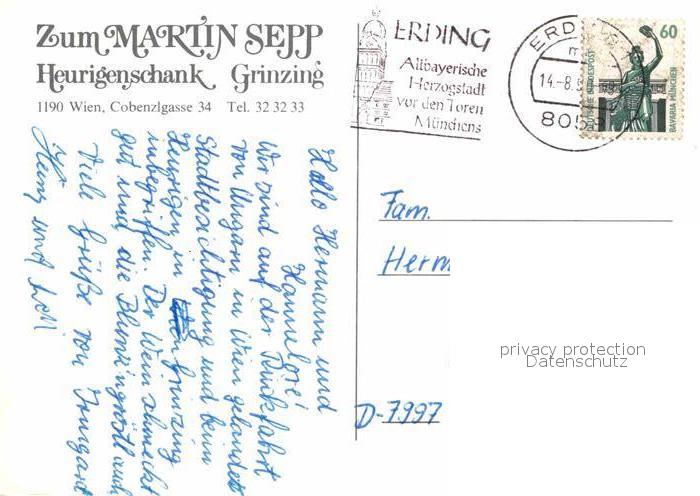 Zum MARTIN SEPP
Heurigenschank Grinzing
1190 Wien, Cobenzlgasse 34 Tel. 32 32 33
ERDING
Altbayerische
Herzogstadt
vor den Toren
Münchens
ERD
14.-8.
805
60
DEUTSCHE BUNDESPOST
BAVARIA MÜNCHEN
Hallo Hermann und
Hannelore!
Wir sind auf der Rückfahrt
von Ungarn in Wien gelandet
Stadtbesichtigung und beim
Heurigen in Grinzing
inbegriffen. Der Wein schmeckt
gut und die auch
Viele Grüße von Irmgard
Heinz und
Fam.
Herm
D-7997
privacy protection
Datenschutz